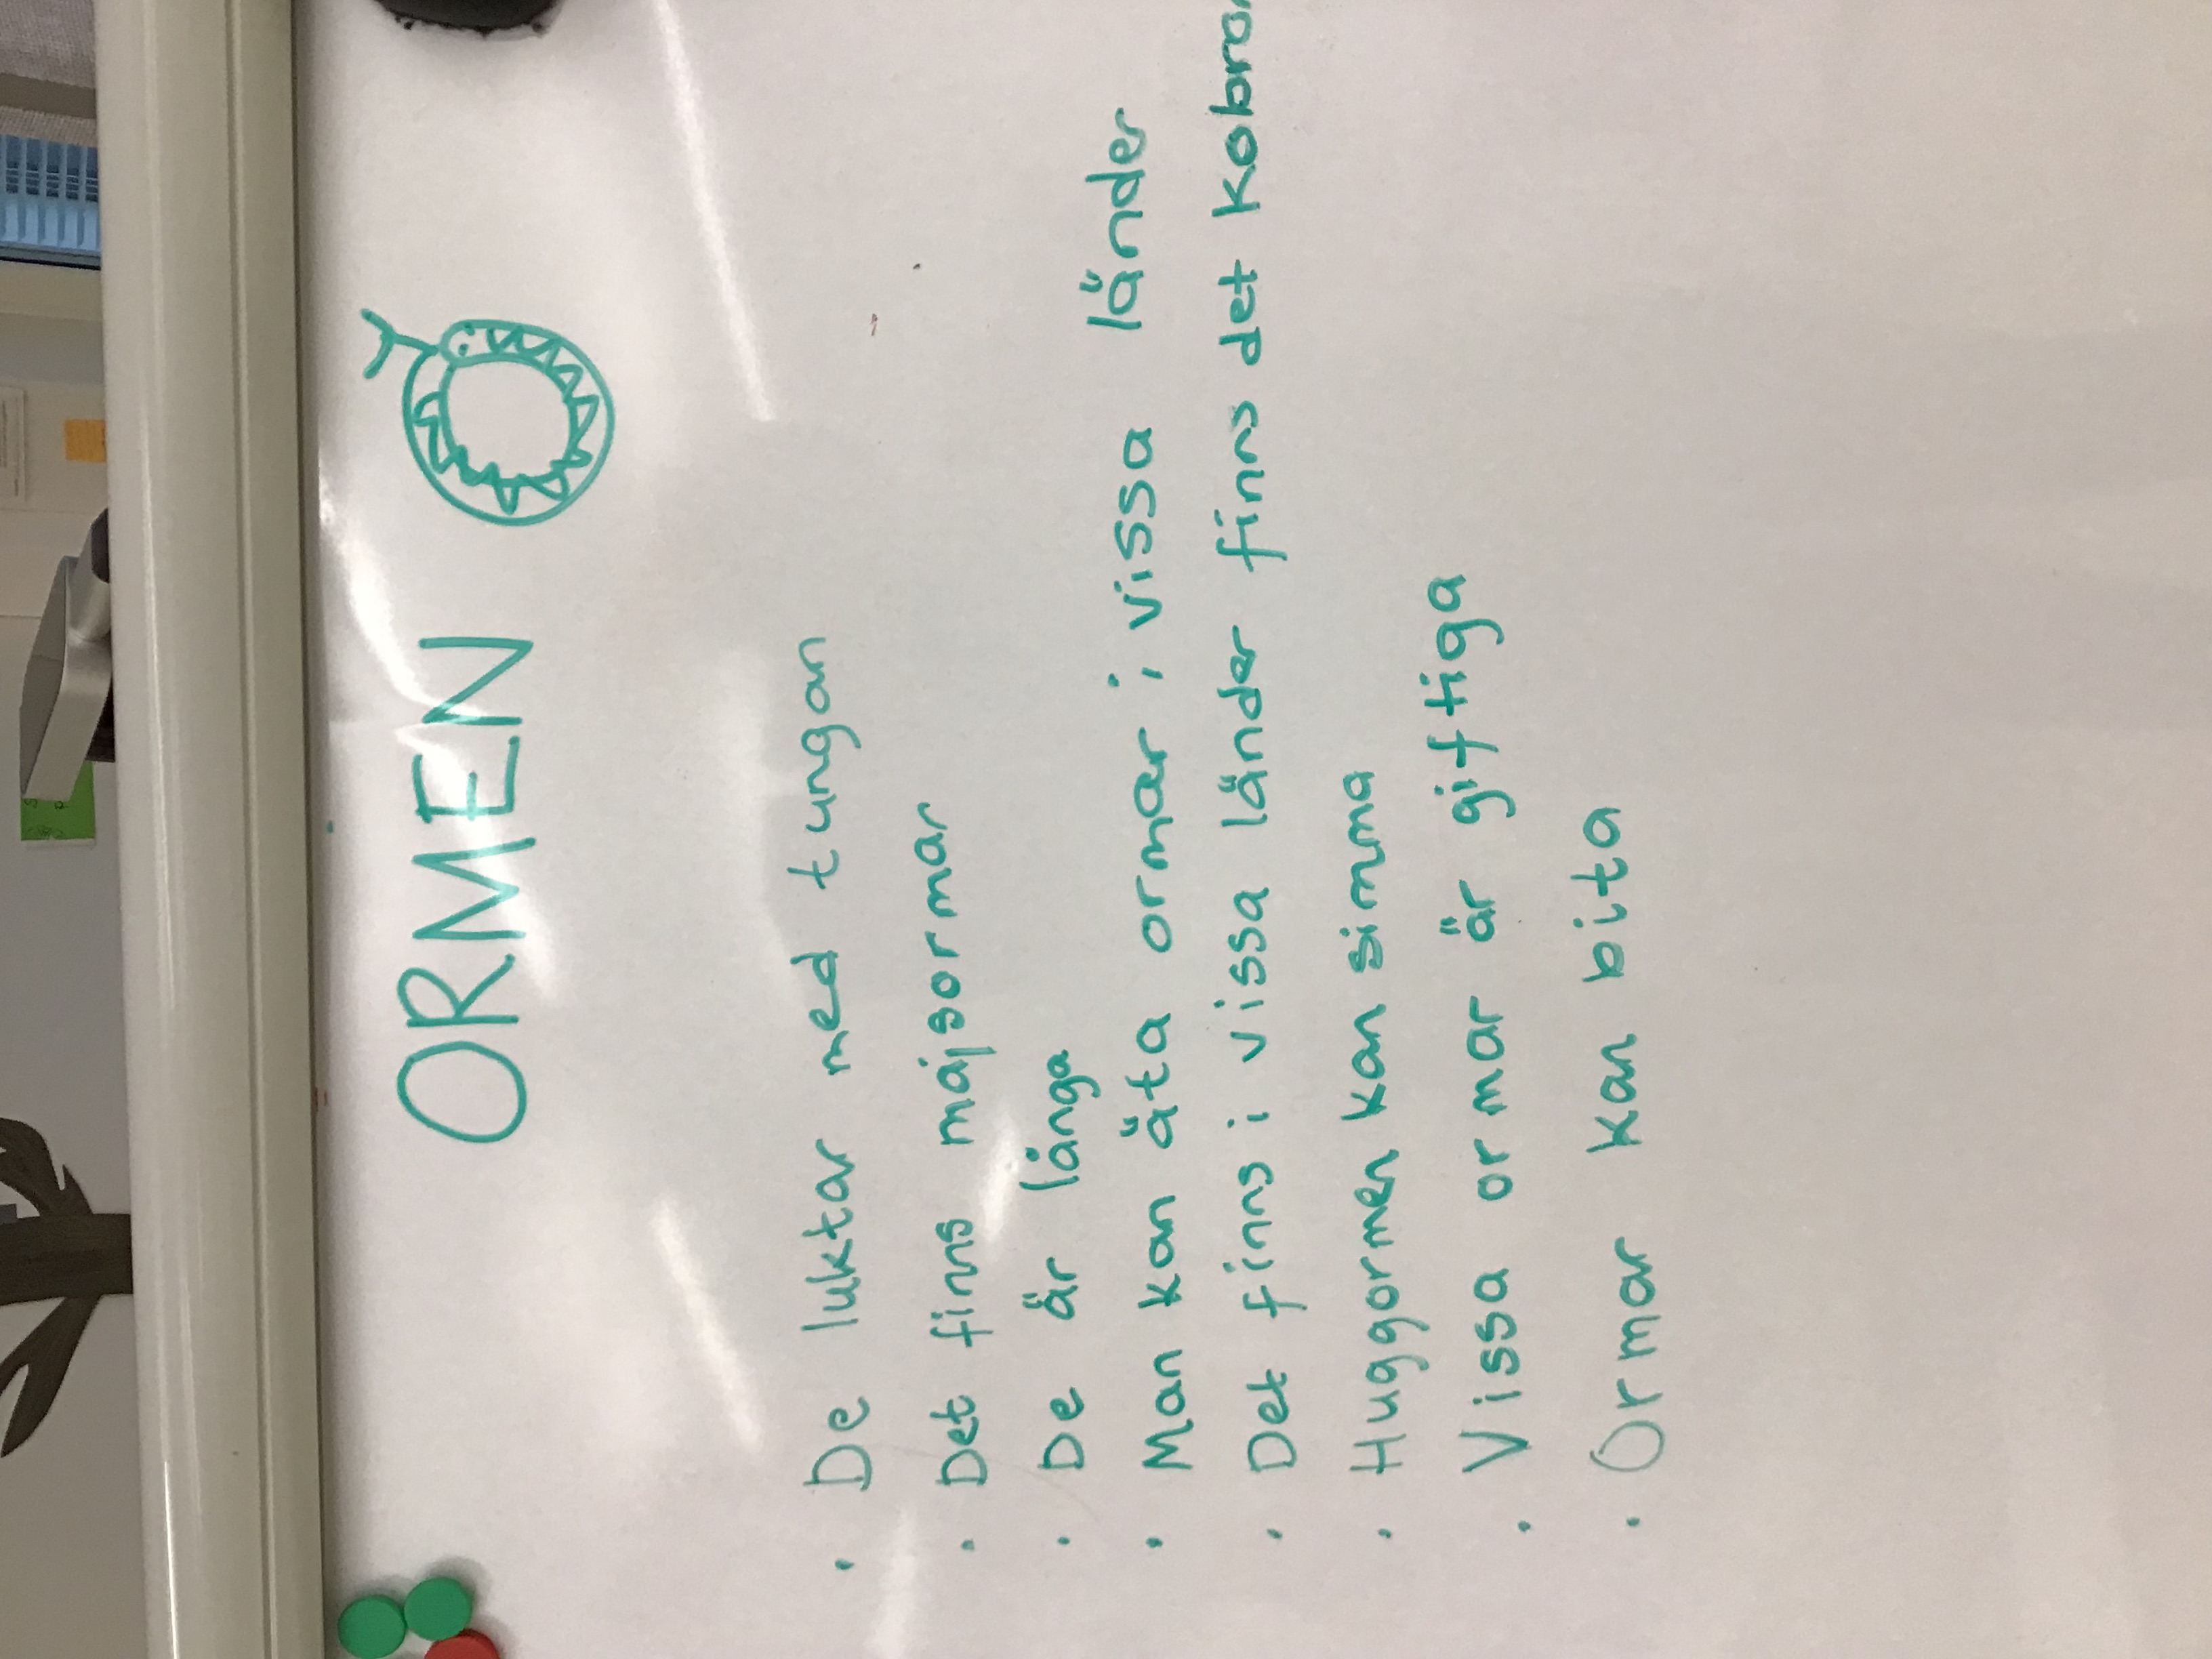 ORMEN
• De luktar med tungan
• Det finns majsormar
• De är långa
• Man kan äta ormar i vissa länder
• Det finns i vissa länder finns det
• Huggormen kan simma
• Vissa ormar är giftiga
• Ormar kan bita